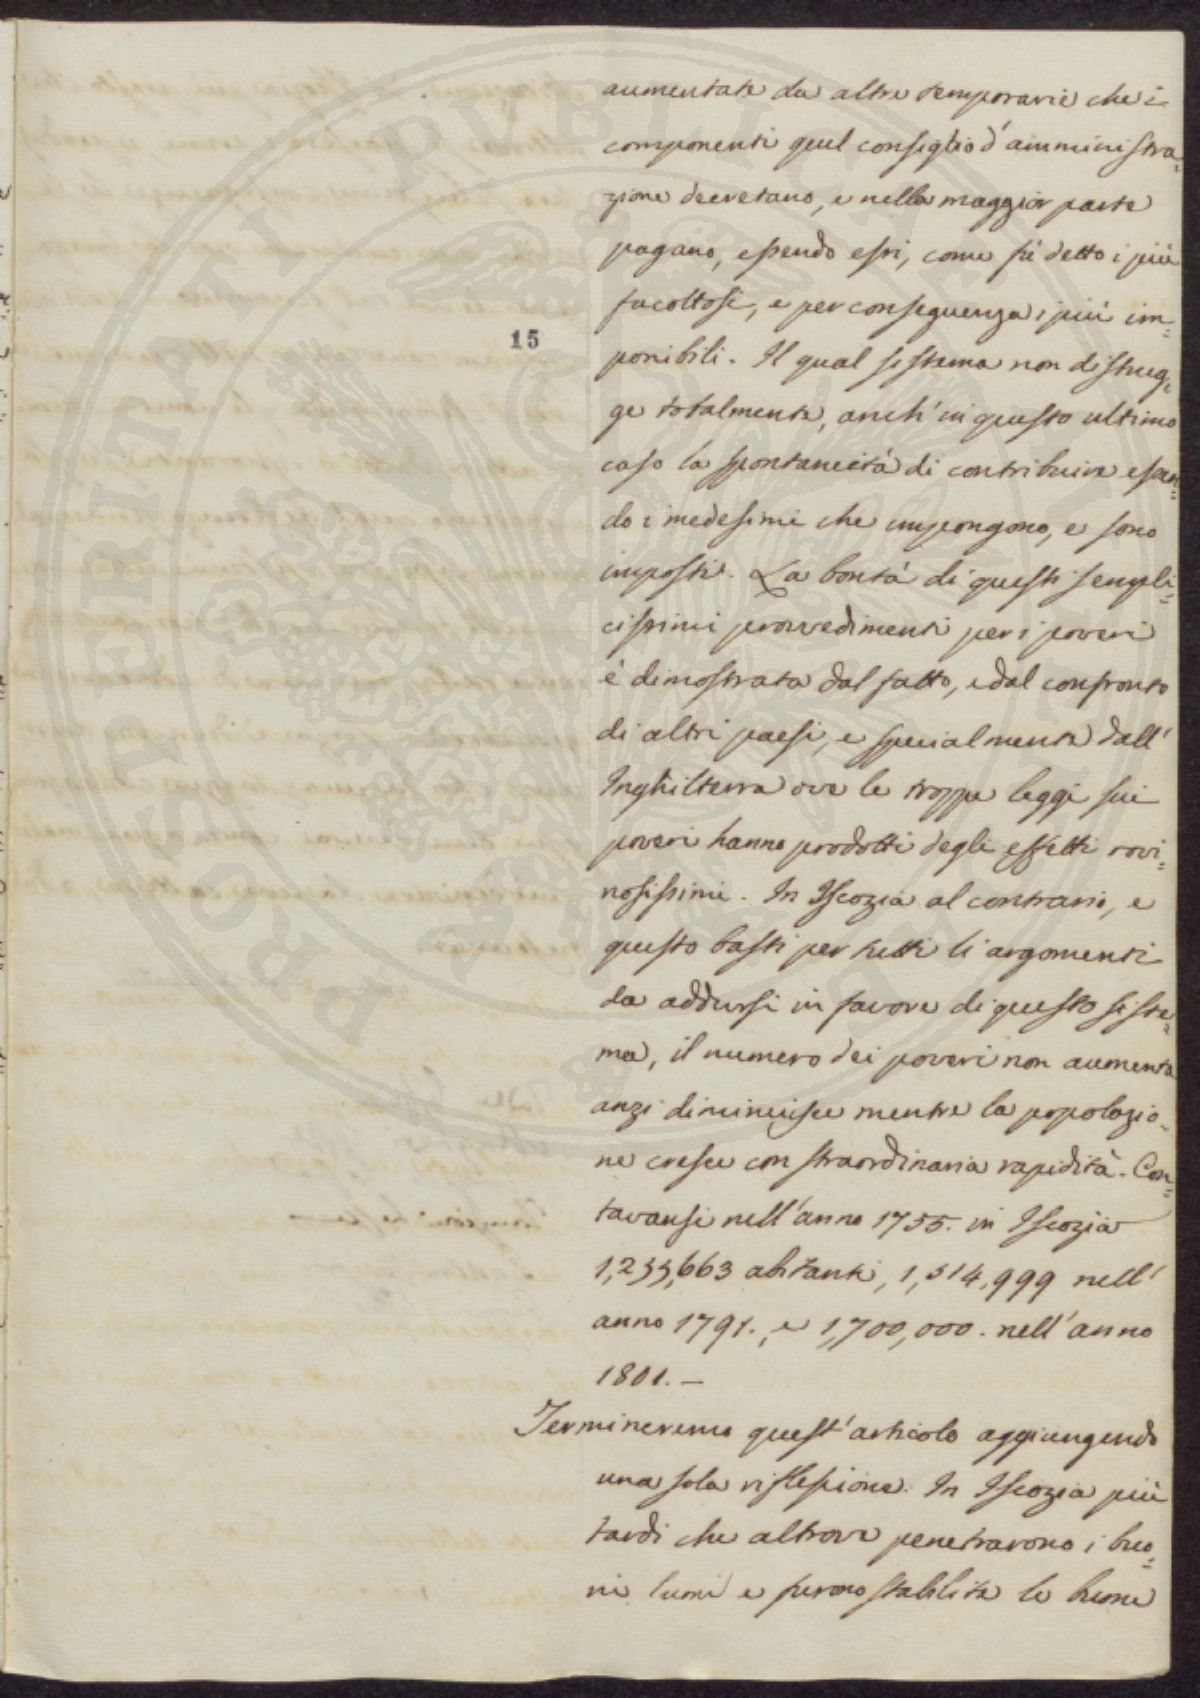 aumentate da altre temporarie che i
componenti quel consiglio d'amministra=
zione decretano, e nella maggior parte
pagano, essendo essi, come fù detto i più
facoltosi, e per conseguenza i più im=
15
ponibili. Il qual sistema non distrug=
ge totalmente, anch'in questo ultimo
caso la spontaneità di contribuire essen=
do i medesimi che impongono, e sono
imposti. La bontà di questi sempli=
cissimi provvedimenti per i poveri
è dimostrata dal fatto, e dal confronto
di altri paesi, e specialmente dall'
Inghilterra ove le troppe leggi sui
poveri hanno prodotti degli effetti rovi=
nosissimi. In Iscozia al contrario, e
questo basti per tutti li argomenti
da addursi in favore di questo siste=
ma, il numero dei poveri non aumenta
anzi diminuisce mentre la popolazio=
ne cresce con straordinaria rapidità. Con=
tavansi nell'anno 1755. in Iscozia
1,255,663 abitanti, 1,514,999 nell'
anno 1791., e 1,700,000. nell'anno
1801. —
Termineremo quest'articolo aggiungendo
una sola riflessione. In Iscozia più
tardi che altrove penetrarono i buo=
ni lumi e furono stabilite le buone
PROSPERITATI PVBLICAE